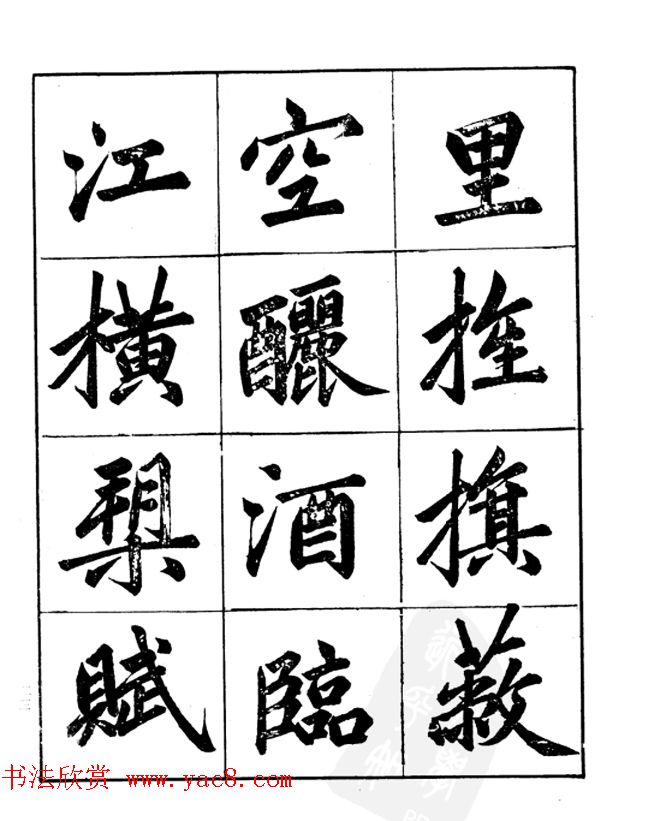 里旌旗蔽
空釃酒臨
江橫槊賦
书法欣赏 www.yac8.com